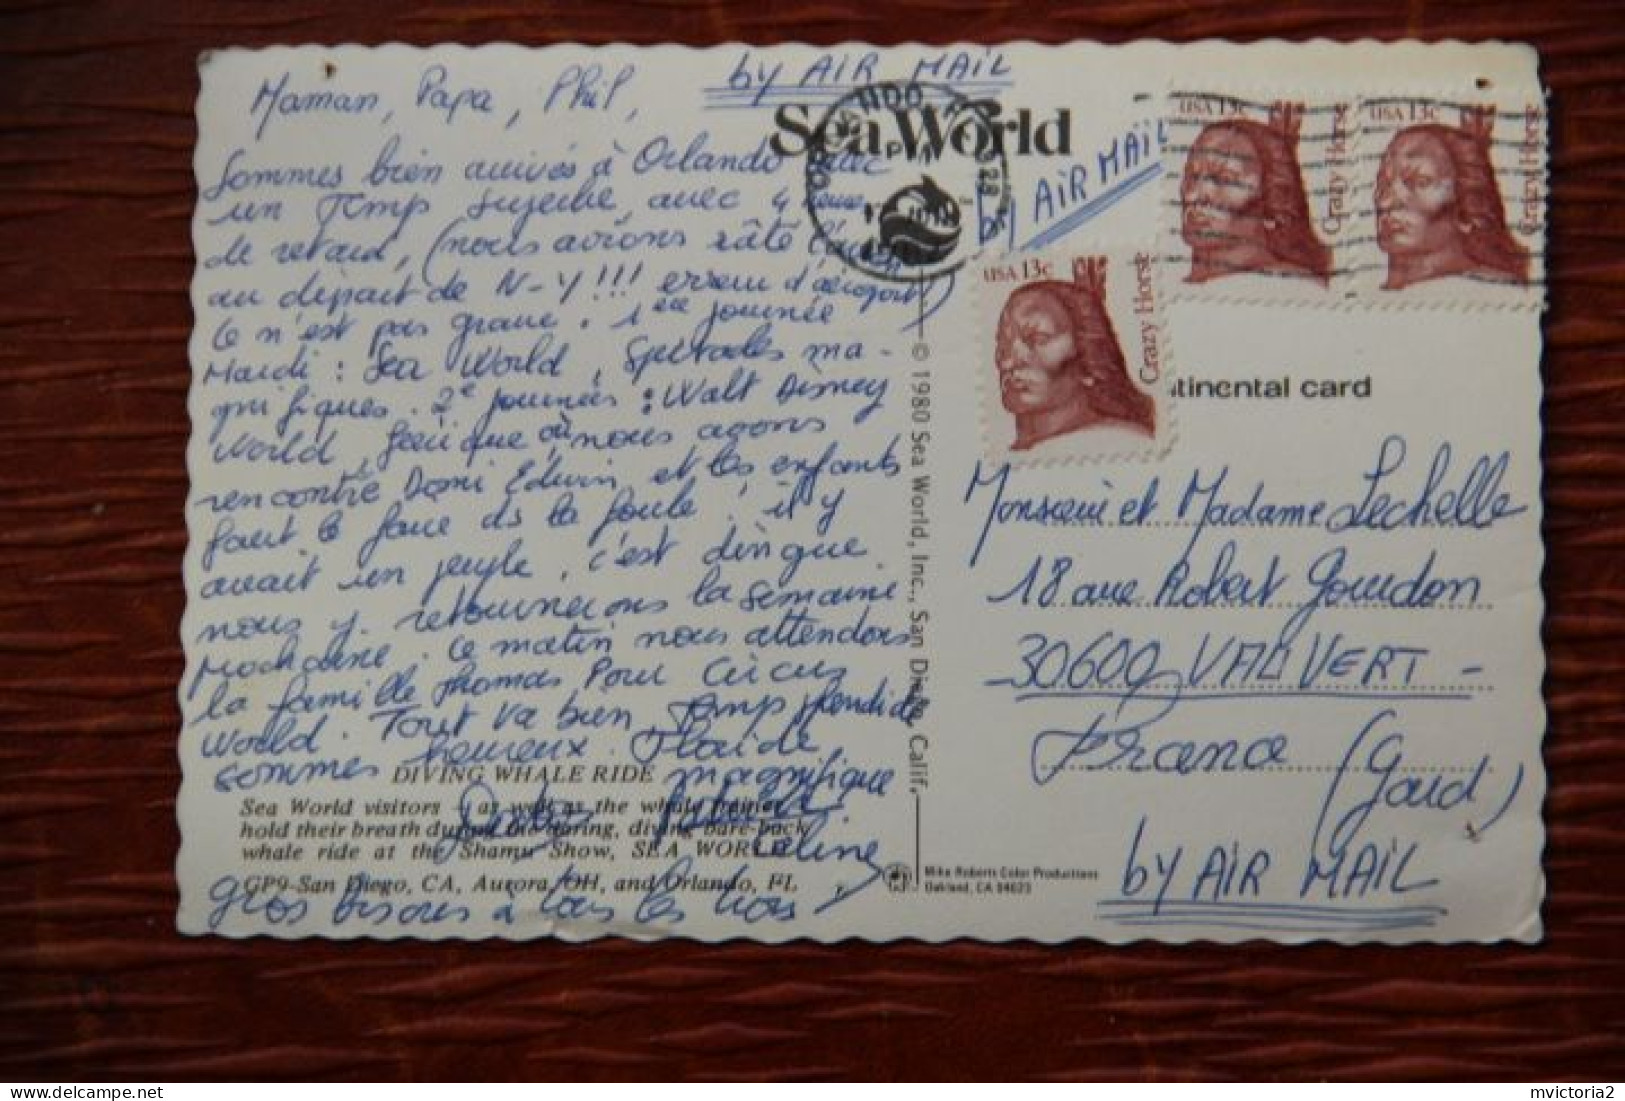 Maman, Papa, Phil,
by AIR MAIL
Sommes bien arrivés à Orlando avec
un Temps superbe, avec 4 heures
de retard, (nous avions râté l'avion
au départ de N-Y !!! erreur d'aéroport)
Ce n'est pas grave. 1ère journée
Mardi : Sea World, Spectacles ma-
gnifiques. 2e journées : Walt Disney
World, féerique où nous avons
rencontré Domi Edwin et les enfants
faut le faire ds la foule ! il y
avait un peuple, c'est dingue
nous y retournerons la semaine
prochaine. Ce matin nous attendons
la famille Thomas Pour Circus
World. Tout va bien, Temps splendide
sommes heureux. Floride
magnifique
Céline
gros bisous à tous les trois
DIVING WHALE RIDE
Sea World visitors - as well as the whale trainer -
hold their breath during the daring, diving bare-back
whale ride at the Shamu Show, SEA WORLD.
GP9-San Diego, CA, Aurora, OH, and Orlando, FL
© 1980 Sea World, Inc., San Diego, Calif.
Sea World
ORLANDO, FL 328
PM
by AIR MAIL
USA 13c
Crazy Horse
USA 13c
Crazy Horse
USA 13c
Crazy Horse
tinental card
Monsieur et Madame Lechelle
18 rue Robert Gourdon
30600 VAUVERT -
France (Gard)
by AIR MAIL
Mike Roberts Color Productions
Oakland, CA 94623
mvictoria2